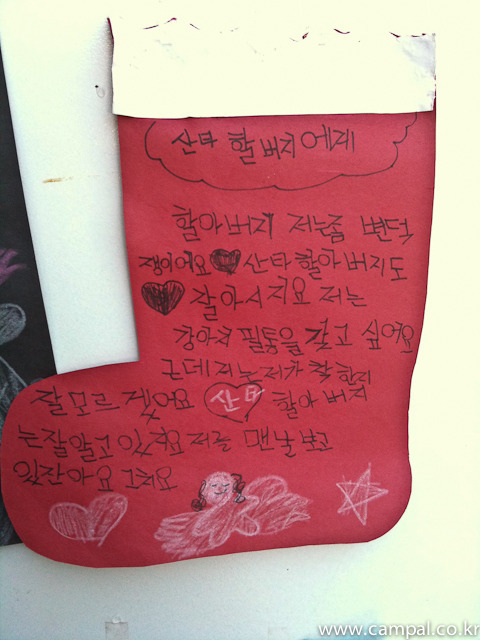 산타 할버지에게
할아버지 저는좀 변덕
쟁이어요 산타할아버지도
잘아시지요 저는
강아지 필통을 갖고 싶어요
근데 저는 제가 착한지
잘모르겠어요 산타 할아버지
는잘알고 있죠 저를 맨날 보고
있잔아요 그쵸
www.campal.co.kr